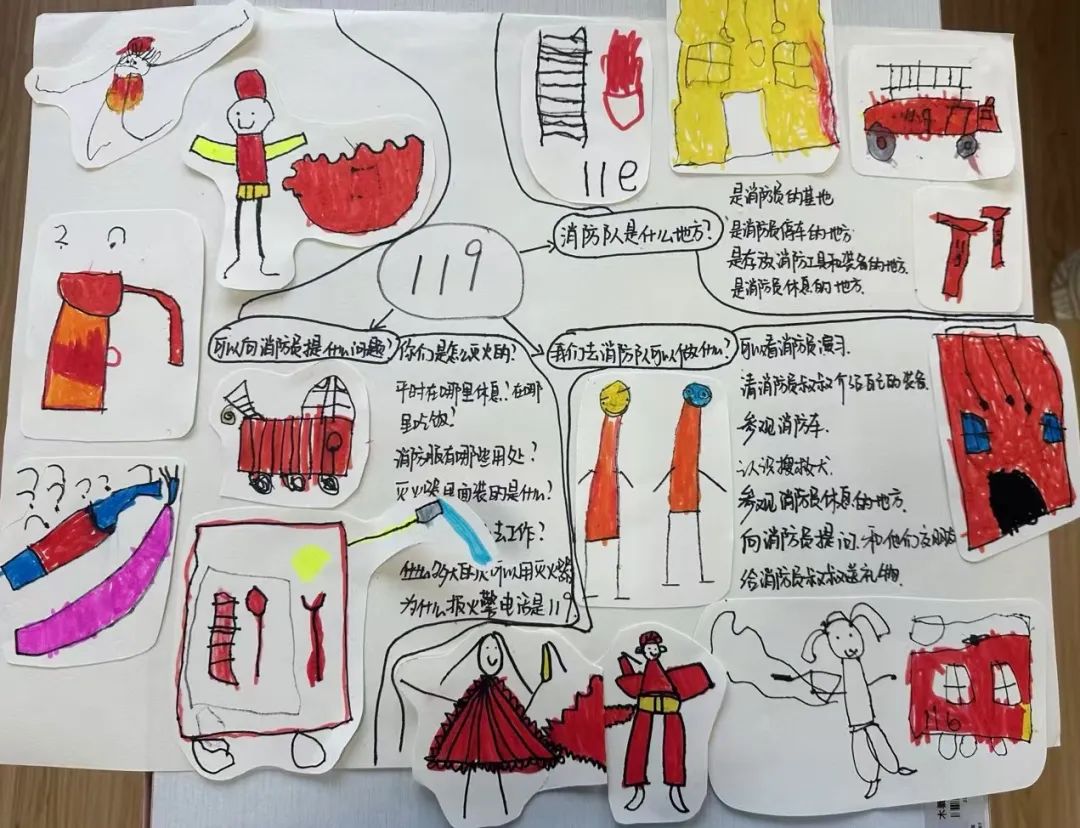 11e
119
消防队是什么地方?
是消防员的基地
是消防员停车的地方
是存放消防工具和装备的地方.
是消防员休息的地方.
可以向消防员提什么问题?
你们是怎么灭火的?
平时在哪里休息?在哪
里吃饭?
消防服有哪些用处?
灭火器里面装的是什么?
去工作?
什么多大的火可以用灭火器
为什么报火警电话是119
我们去消防队可以做什么?
可以看消防员演习.
请消防员叔叔介绍自己的装备.
参观消防车.
认识搜救犬.
参观消防员休息的地方.
向消防员提问.和他们交朋友
给消防员叔叔送礼物.
116